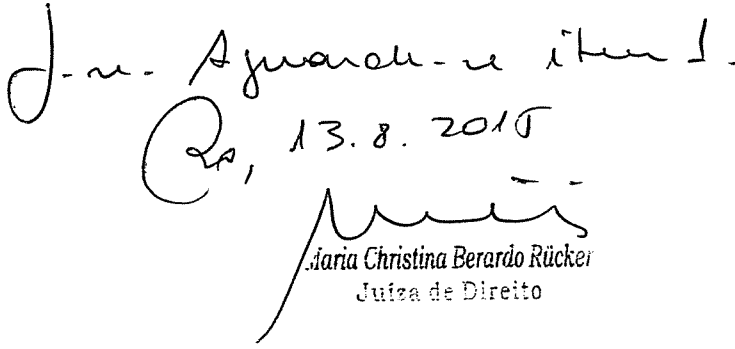 J-se. Aguarde-se item 1.
Rio, 13.8.2015
Maria Christina Berardo Rücker
Juíza de Direito